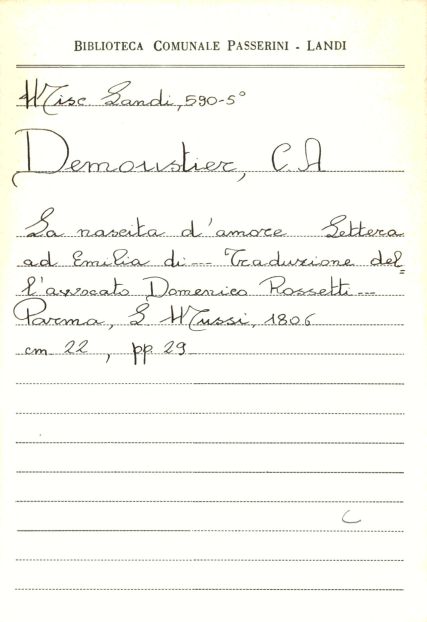 BIBLIOTECA COMUNALE PASSERINI - LANDI
Misc. Landi, 590-5°
Demoustier, C. A
La nascita d'amore Lettera
ad Emilia di --- Traduzione del=
l'avvocato Domenico Rossetti ---
Parma, L Mussi, 1806
cm 22, pp. 29
C